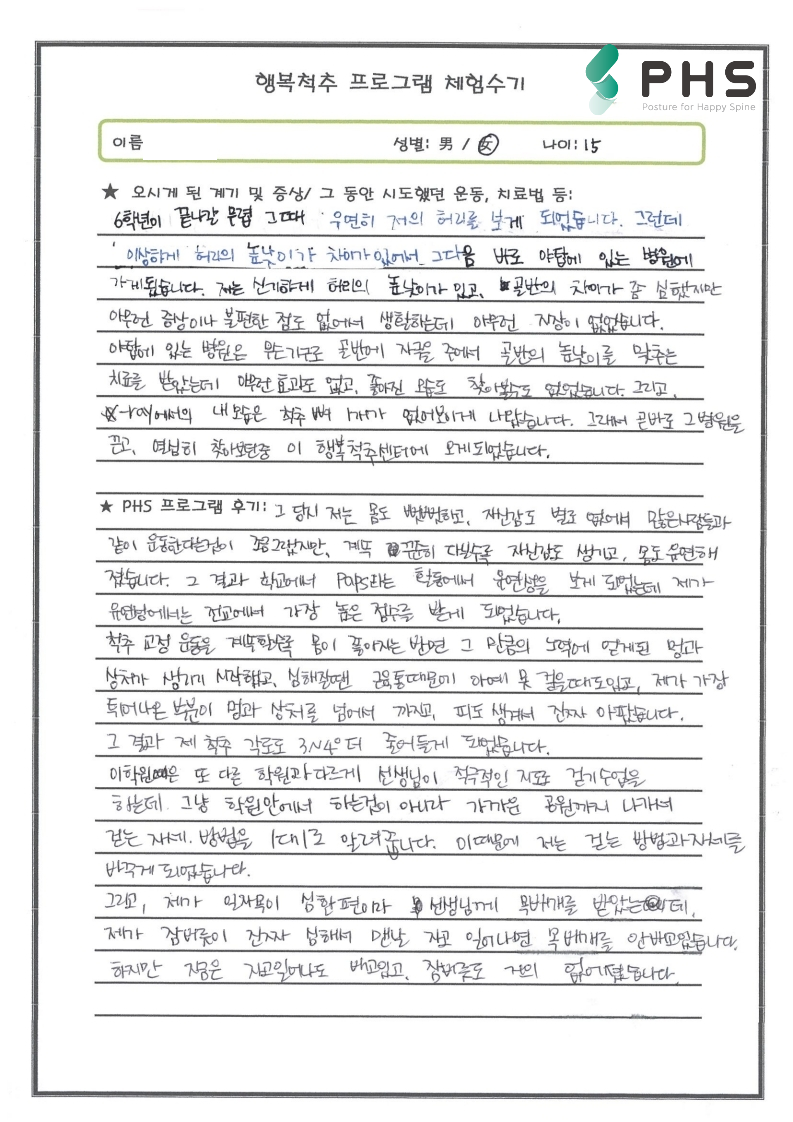 행복척추 프로그램 체험수기
PHS
Posture for Happy Spine
이름 성별: 男 / 女 나이: 15
★ 오시게 된 계기 및 증상/ 그 동안 시도했던 운동, 치료법 등:
6학년이 끝나갈 무렵 그때 우연히 저의 허리를 보게 되었습니다. 그런데
이상하게 허리의 높낮이가 차이가 있어서 그다음 바로 야탑에 있는 병원에
가게됩습니다. 저는 신기하게 허리의 높낮이가 있고, 골반의 차이가 좀 심했지만
아무런 증상이나 불편한 점도 없에서 생활하는데 아무런 지장이 없었습니다.
야탑에 있는 병원은 무슨기구로 골반에 자극을 주에서 골반의 높낮이를 맞추는
치료를 받았는데 아무런효과도 없고, 좋아진 모습도 찾아볼수도 없었습니다. 그리고,
X-ray에서의 내모습은 척추 뼈 1개가 없어보이게 나왔습니다. 그래서 곧바로 그병원을
끈고, 열심히 찾아보던중 이 행복척추센터에 오게되었습니다.
★ PHS 프로그램 후기: 그 당시 저는 몸도 뻣뻣하고, 자신감도 별로 없어서 많은사람들과
같이 운동한다는점이 조금그랬지만, 계속 꾸준히 다닐수록 자신감도 생기고, 몸도유연해
졌습니다. 그 결과 학교에서 Paps라는 활동에서 유연성을 보게 되었는데 제가
유연성에서는 전교에서 가장 높은 점수를 받게 되었습니다.
척추 교정 운동을 계속할수록 몸이 좋아지는 반면 그 만큼의 노력에 얻게된 멍과
상처가 생기기 시작했고, 심해질땐 근육통때문에 아예 못 걸을때도있고, 제가 가장
튀어나온 부분이 멍과 상처를 넘어서 까지고, 피도 생겨서 진짜 아팠습니다.
그 결과 제 척추 각도도 3~4°더 줄어들게 되었습니다.
이학원은 또 다른 학원과다르게 선생님이 적극적인 지도 걷기수업을
하는데. 그냥 학원안에서 하는것이 아니라 가까운 공원까지 나가셔
걷는 자세. 방법을 1대1로 알려줍니다. 이때문에 저는 걷는 방법과자세를
바꾸게되었습니다.
그리고, 제가 일자목이 심한편이라 선생님께 목베개를 받았는데,
제가 잠버릇이 진짜 심해서 맨날 자고 일어나면 목베개를 안베고있습니다.
하지만 지금은 자고일어나도 베고있고, 잠버릇도 거의 없어졌습니다.